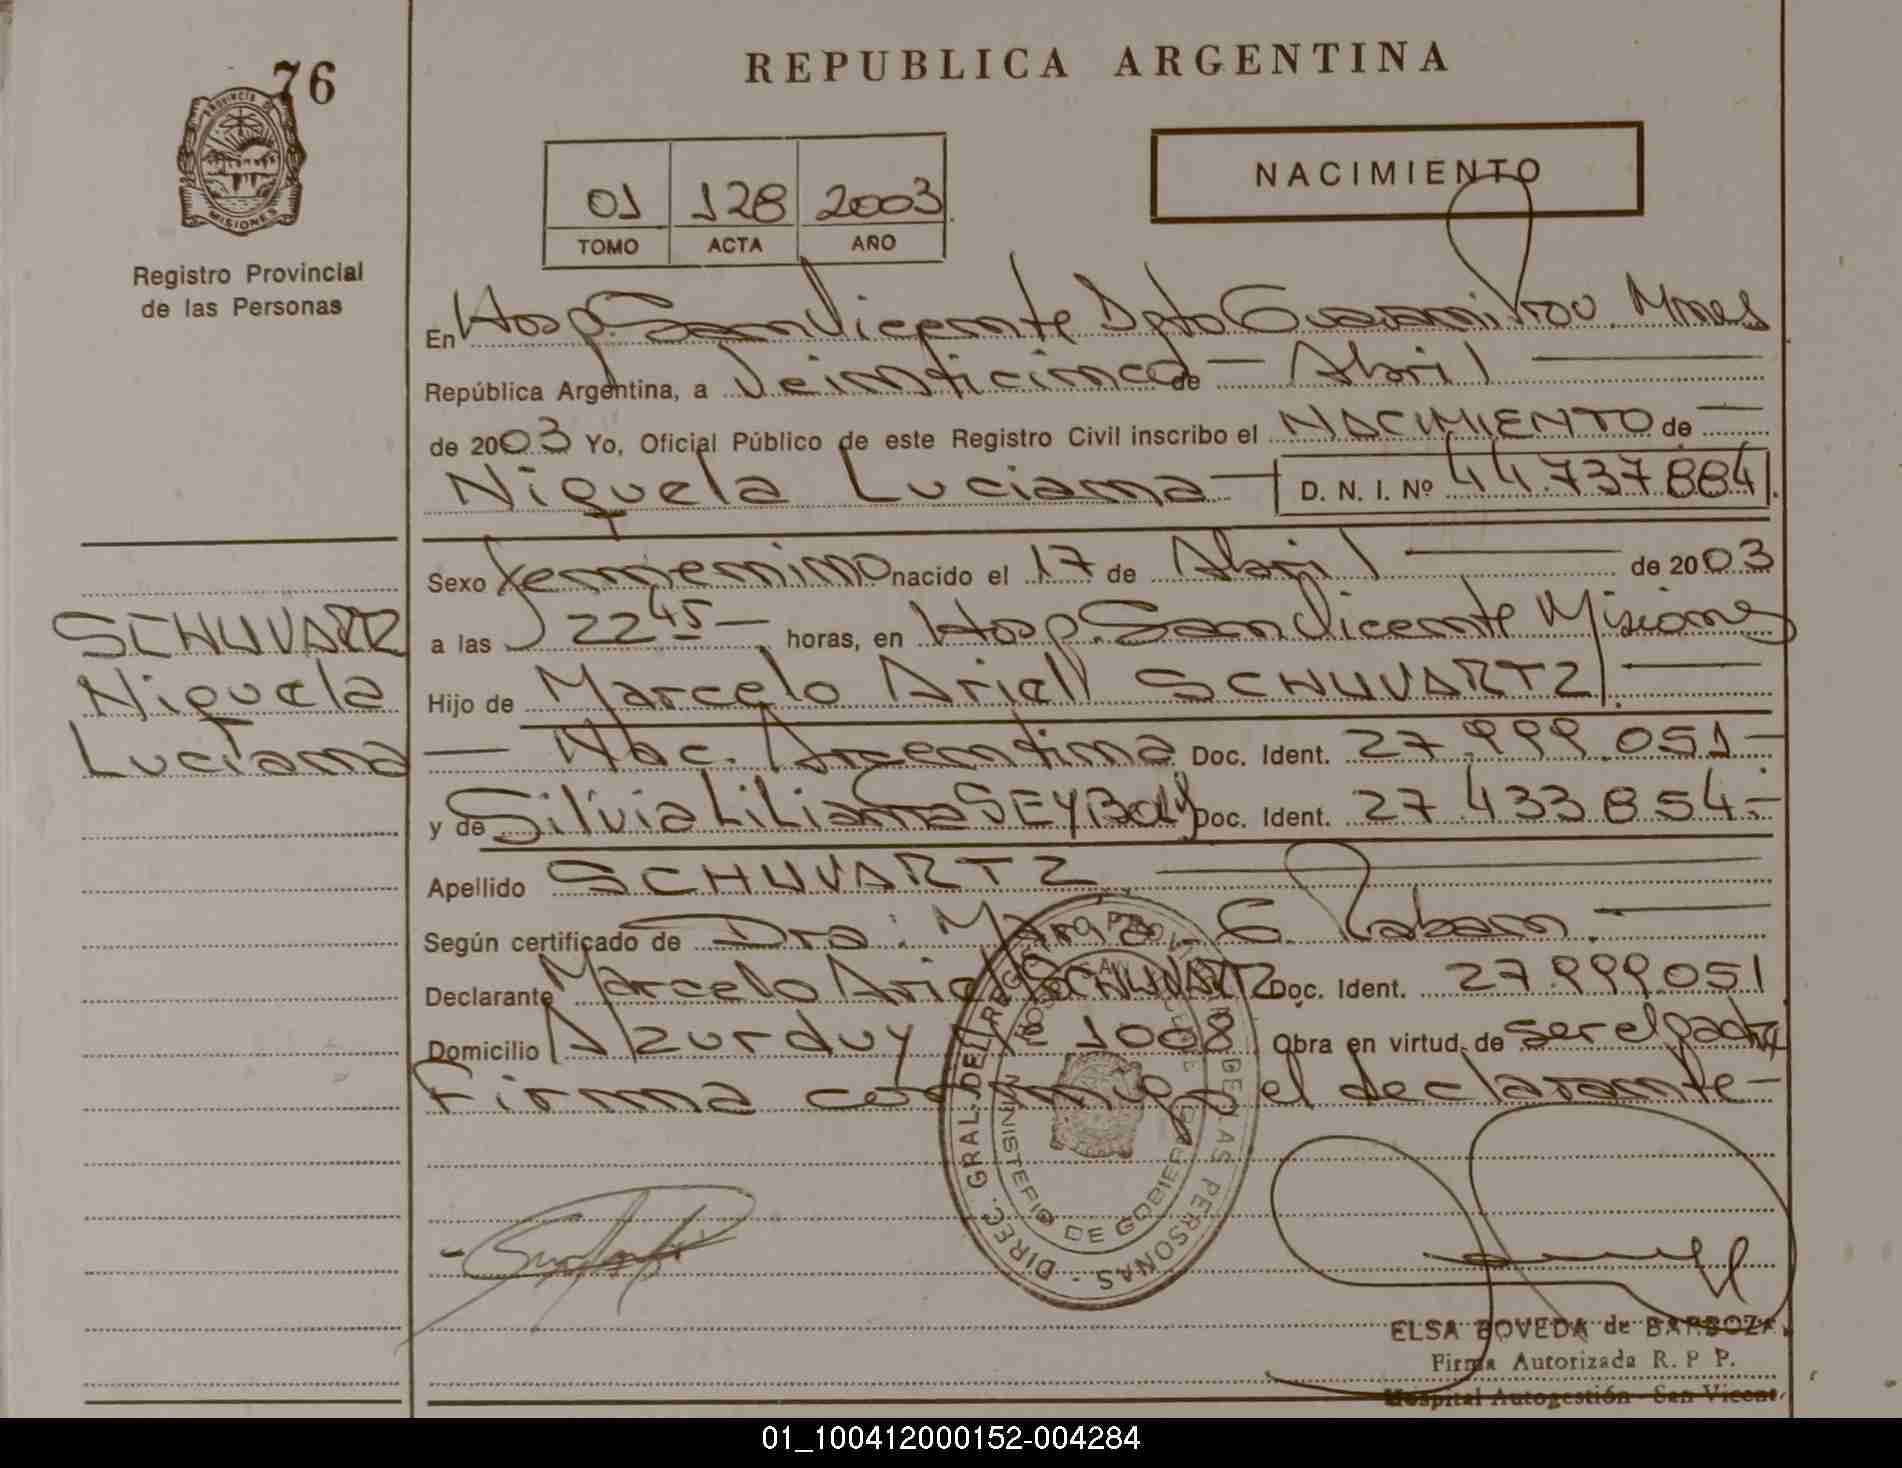 76
PROVINCIA DE
MISIONES
Registro Provincial
de las Personas
REPUBLICA ARGENTINA
01 128 2003
TOMO ACTA AÑO
NACIMIENTO
En Hosp. San Vicente Dpto Guarani Prov. Mnes
República Argentina, a Veinticinco de — Abril —
de 2003 Yo, Oficial Público de este Registro Civil inscribo el NACIMIENTO de —
Niquela Luciana — D. N. I. Nº 44.737.884
Sexo femenino nacido el 17 de Abril — de 2003
a las 22 45 — horas, en Hosp. San Vicente Misiones
Hijo de Marcelo Ariel SCHUVARTZ —
— Nac. Argentina Doc. Ident. 27.999.051 —
y de Silvia Liliana SEYBOLD Doc. Ident. 27.433.854.-
Apellido SCHUVARTZ —
Según certificado de Dra: E. —
Declarante Marcelo Ariel SCHUVARTZ Doc. Ident. 27.999.051
Domicilio Azurduy Nº 1008 Obra en virtud de ser el padre
Firma conmigo el declarante —
SCHUVARTZ
Niquela
Luciana
DIREC. GRAL. DEL REG. PROV. DE LAS PERSONAS
MINISTERIO DE GOBIERNO
ELSA BOVEDA de BARBOZA
Firma Autorizada R. P P.
Hospital Autogestión San Vicent
01_100412000152-004284